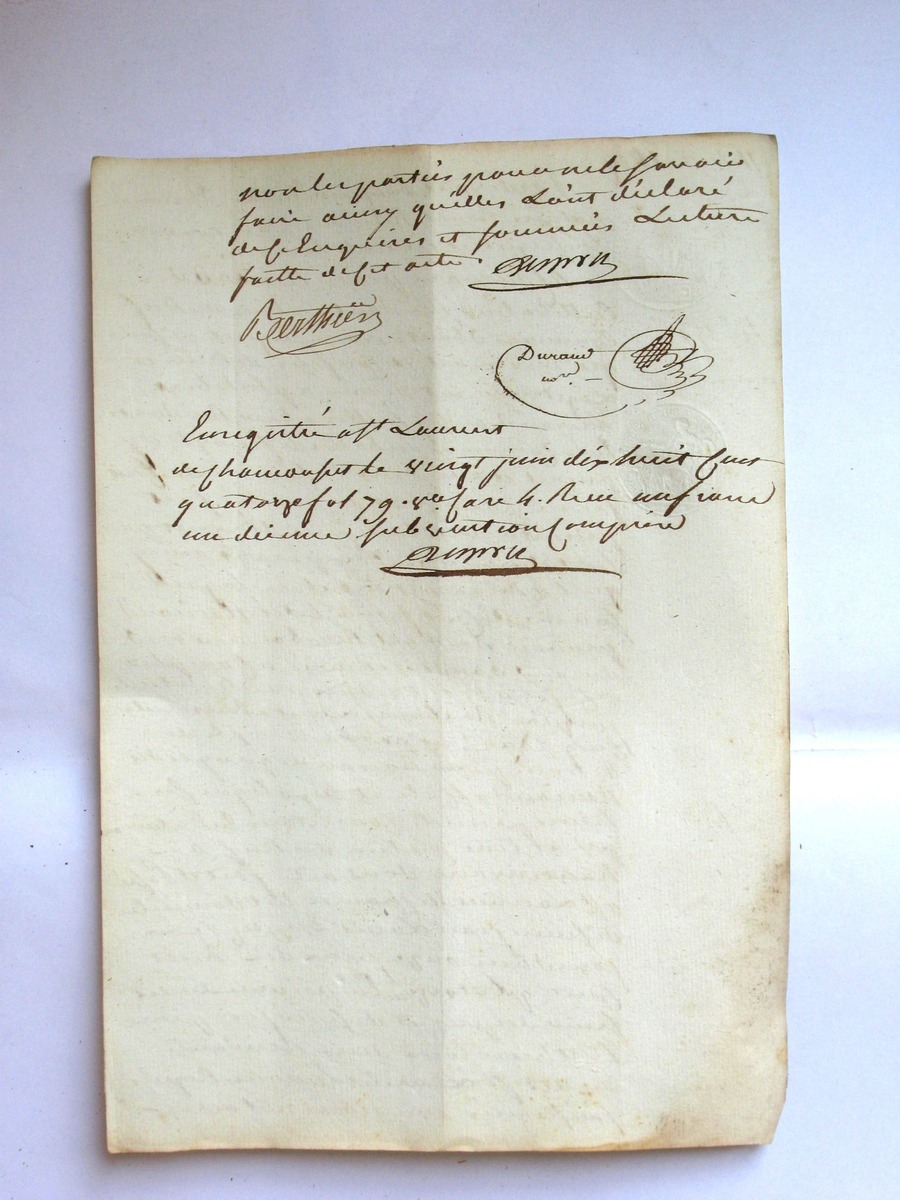 non les parties pour ne le Savoir
faire ainsy qu'elles L'ont déclaré
de ce Enquises et sommées Lecture
faitte de Cet acte
Berthier
Durand
nore.
Enregistré a St Laurent
de Chamousset le vingt juin dix huit Cent
quatorze fol 79. vo. Case 4. Reçu un franc
un décime Subvention Comprise